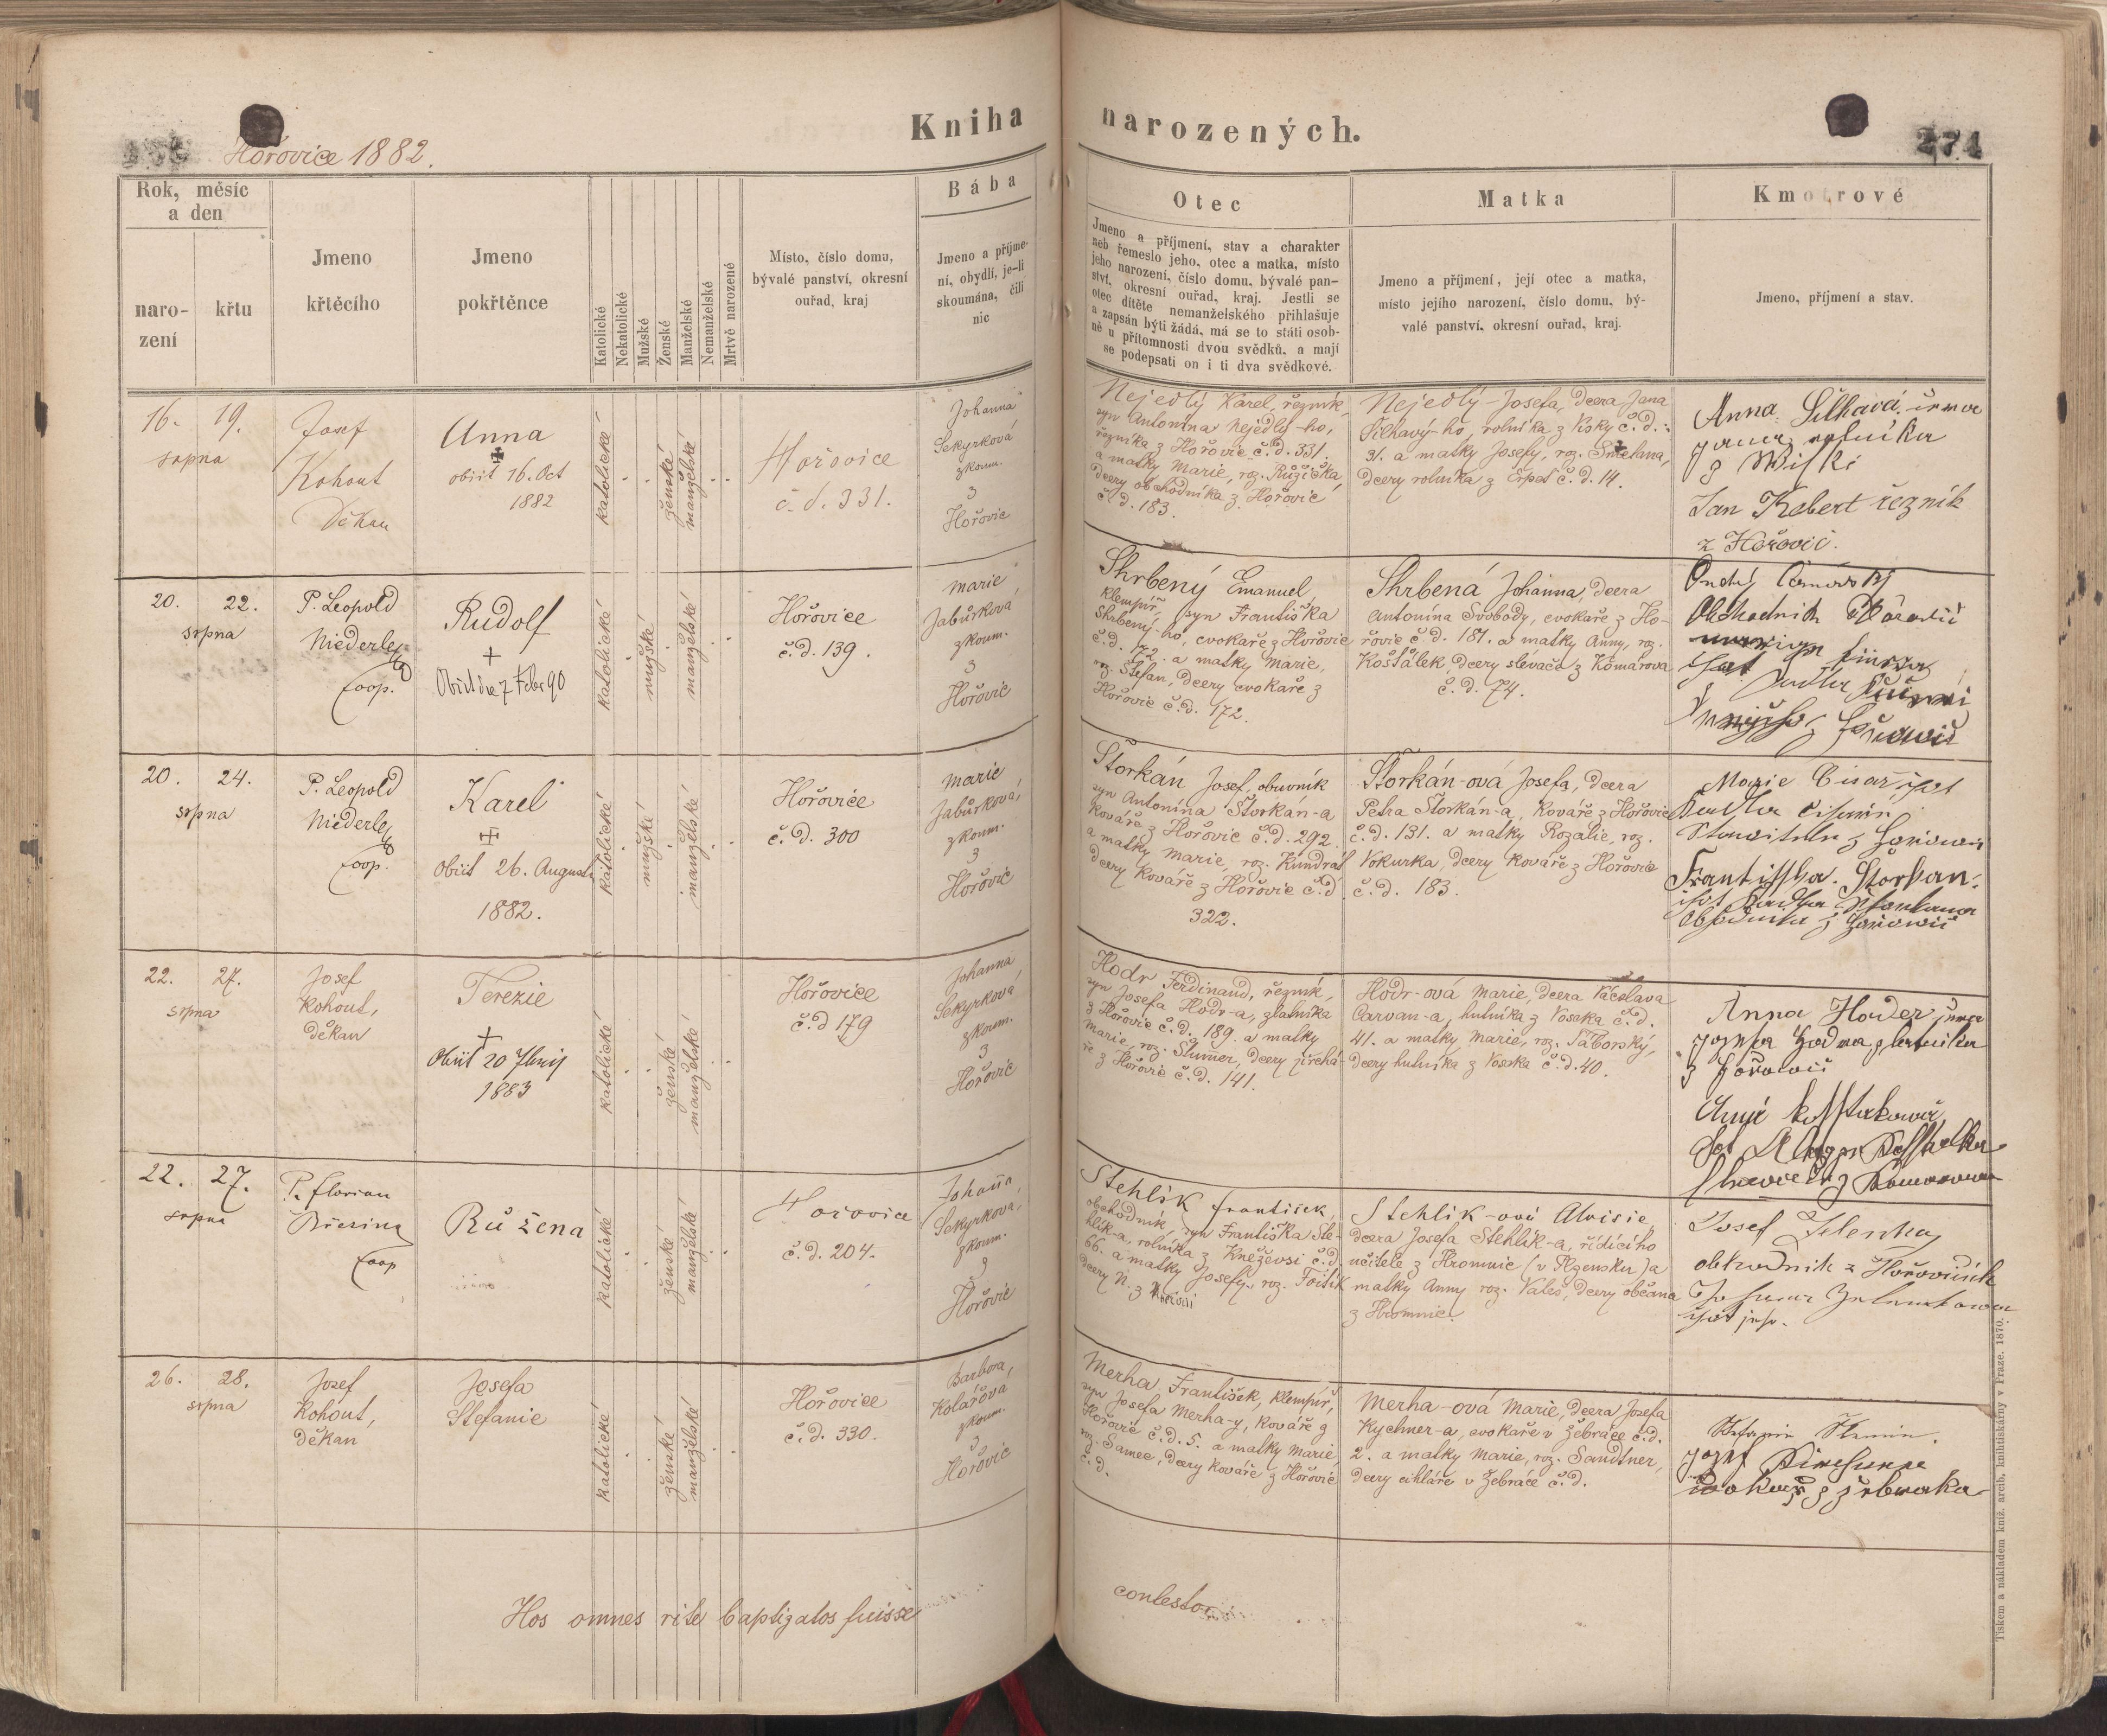 Kniha narozených.
Hořovice 1882.
271
Rok, měsíc
a den
naro-
zení
křtu
Jmeno
křtěcího
Jmeno
pokřtěnce
Katolické
Nekatolické
Mužské
Ženské
Manželské
Nemanželské
Mrtvě narozené
Místo, číslo domu,
bývalé panství, okresní
ouřad, kraj
Bába
Jmeno a příjme-
ní, obydlí, je-li
skoumána, čili
nic
Otec
Jmeno a příjmení, stav a charakter
neb řemeslo jeho, otec a matka, místo
jeho narození, číslo domu, bývalé pan-
ství, okresní ouřad, kraj. Jestli se
otec dítěte nemanželského přihlašuje
a zapsán býti žádá, má se to státi osob-
ně u přítomnosti dvou svědků, a mají
se podepsati on i ti dva svědkové.
Matka
Jmeno a příjmení, její otec a matka,
místo jejího narození, číslo domu, bý-
valé panství, okresní ouřad, kraj.
Kmotrové
Jmeno, příjmení a stav.
16. 19.
srpna
Josef
Kohout
Děkan
Anna
obiit 16. Oct
1882
katolické
ženské
manželské
Hořovice
č. d. 331.
Johanna
Sekyrková
zkoum.
z
Hořovic
Nejedlý Karel, řezník,
syn Antonína Nejedlý-ho,
řezníka z Hořovic č.d. 331.
a matky Marie, roz. Růžička,
dcery obchodníka z Hořovic
č.d. 183.
Nejedlý Josefa, dcera Jana
Šilhavý-ho, rolníka z Visky č.d.
31. a matky Josefy, roz. Smetana,
dcery rolníka z Erpet č.d. 14.
Anna Šilhavá
rolníka
z
Jan Kebert řezník
z Hořovic.
20. 22.
srpna
P. Leopold
Niederle
Coop.
Rudolf
Obiit die 7 Febr 90
katolické
mužské
manželské
Hořovice
č.d. 139.
Marie
Jabůrková
zkoum.
z
Hořovic
Skrbený Emanuel,
klempíř, syn Františka
Skrbený-ho, cvokaře z Hořovic
č.d. 172. a matky Marie,
roz. Štefan, dcery cvokaře z
Hořovic č.d. 172.
Skrbená Johanna, dcera
Antonína Svobody, cvokaře z Ho-
řovic č.d. 187. a matky Anny, roz.
Košťálek, dcery slévače z Komárova
č.d. 74.
20. 24.
srpna
P. Leopold
Niederle
Coop.
Karel
Obiit 26. Augusti
1882.
katolické
mužské
manželské
Hořovice
č.d. 300
Marie
Jabůrková,
zkoum.
z
Hořovic
Štorkán Josef, obuvník
syn Antonína Štorkán-a
kováře z Hořovic č.d. 292.
a matky Marie, roz. Kundrat
dcery kováře z Hořovic č.d.
322.
Štorkán-ová Josefa, dcera
Petra Štorkán-a, kováře z Hořovic
č.d. 131. a matky Rozalie, roz.
Vokurka, dcery kováře z Hořovic
č.d. 183.
Marie
Františka Štorkan.
22. 27.
srpna
Josef
Kohout,
děkan
Terezie
Obiit 20
1883
katolické
ženské
manželské
Hořovice
č.d 179
Johanna
Sekyrková
zkoum.
z
Hořovic
Hodr Ferdinand, řezník,
syn Josefa Hodr-a, zlatníka
z Hořovic č.d. 189. a matky
Marie, roz. Slumer, dcery jirchá-
ře z Hořovic č.d. 141.
Hodr-ová Marie, dcera Václava
Carvan-a, hutníka z Voseka č.d.
41. a matky Marie, roz. Táborský,
dcery hutníka z Voseka č.d. 40.
Anna Hoder
22. 27.
srpna
P. Florian
Březina
Coop
Růžena
katolické
ženské
manželské
Hořovice
č.d. 204.
Johana
Sekyrková,
zkoum.
z
Hořovic
Stehlík František,
obchodník, syn Františka Ste-
hlík-a, rolníka z Kněževsi č.d.
66. a matky Josefy, roz. Foitík
dcery N. z
Stehlík-ová Aloisie,
dcera Josefa Stehlík-a, řídícího
učitele z Hromnic (v Plzensku) a
matky Anny roz. Valeš, dcery občana
z Hromnic.
Josef Jelenka
obchodník z Hořovic
26. 28.
srpna
Josef
Kohout,
děkan
Josefa
Štefanie
katolické
ženské
manželské
Hořovice
č.d. 330.
Barbora,
Kolářova
zkoum.
z
Hořovic
Merha František, klempíř,
syn Josefa Merha-y, kováře z
Hořovic č.d. 5. a matky Marie,
roz. Samec, dcery kováře z Hořovic
č.d.
Merha-ová Marie, dcera Josefa
Kychner-a, cvokaře v Žebráce č.d.
2. a matky Marie, roz. Sandtner,
dcery cihláře v Žebráce č.d.
Hos omnes rite baptizatos fuisse contestor
Tiskem a nákladem kníž. arcib. knihtiskárny v Praze. 1870.